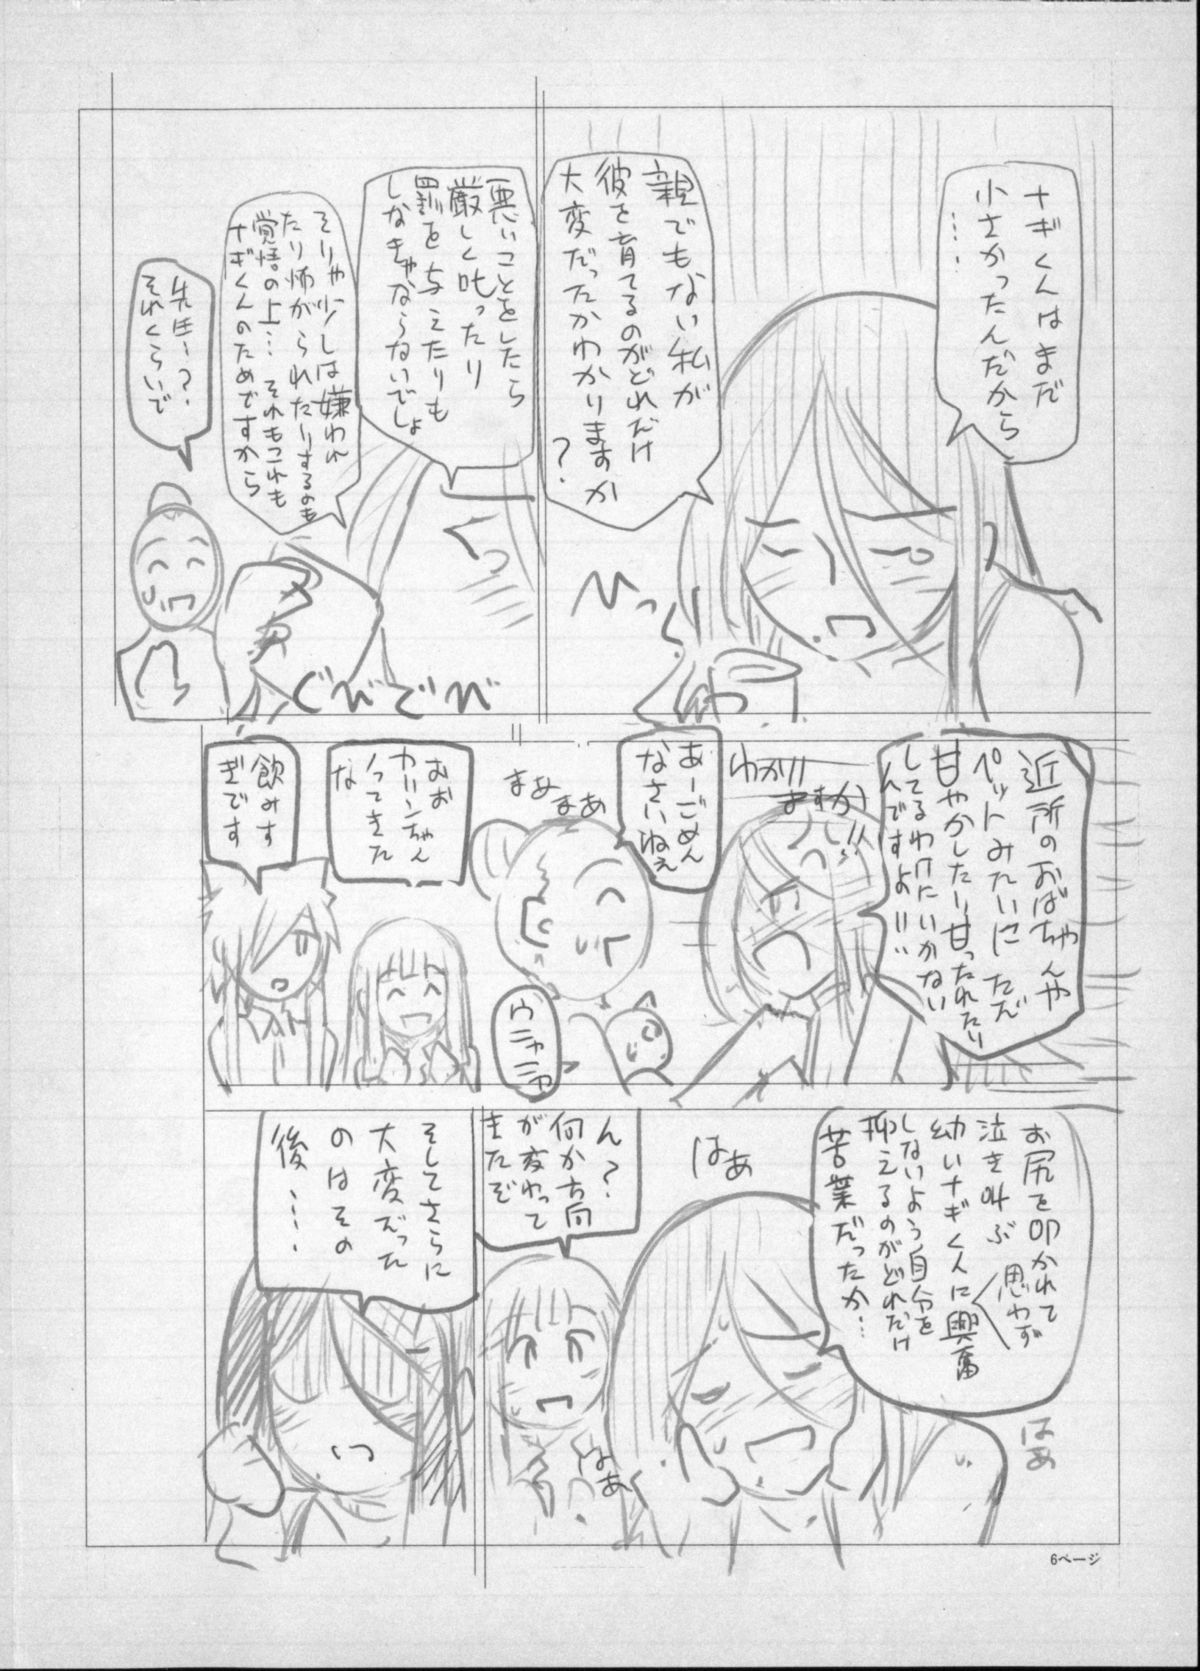 ナギくんはまだ
小さかったんだから
……
親でもない私が
彼を育てるのがどれだけ
大変だったかわかりますか
？
ひっく
悪いことをしたら
厳しく叱ったり
罰を与えたりも
しなきゃならないでしょ
そりゃ少しは嫌われ
たり怖がられたりするのも
覚悟の上… それもこれも
ナギくんのためですから
先生ー？
それくらいで
ぐびぐび
近所のおばちゃんや
ペットみたいにただ
甘やかしたり甘ったれたり
してるわけにいかない
んですよ!!
わかり
ますか!!
あーごめん
なさいねぇ
まぁまぁ
ウニャニャ
おお
カリンちゃん
ノってきた
な
飲みす
ぎです
ん？
何か方向
が変わって
きたぞ
そしてさらに
大変だった
のはその
後……
6ページ